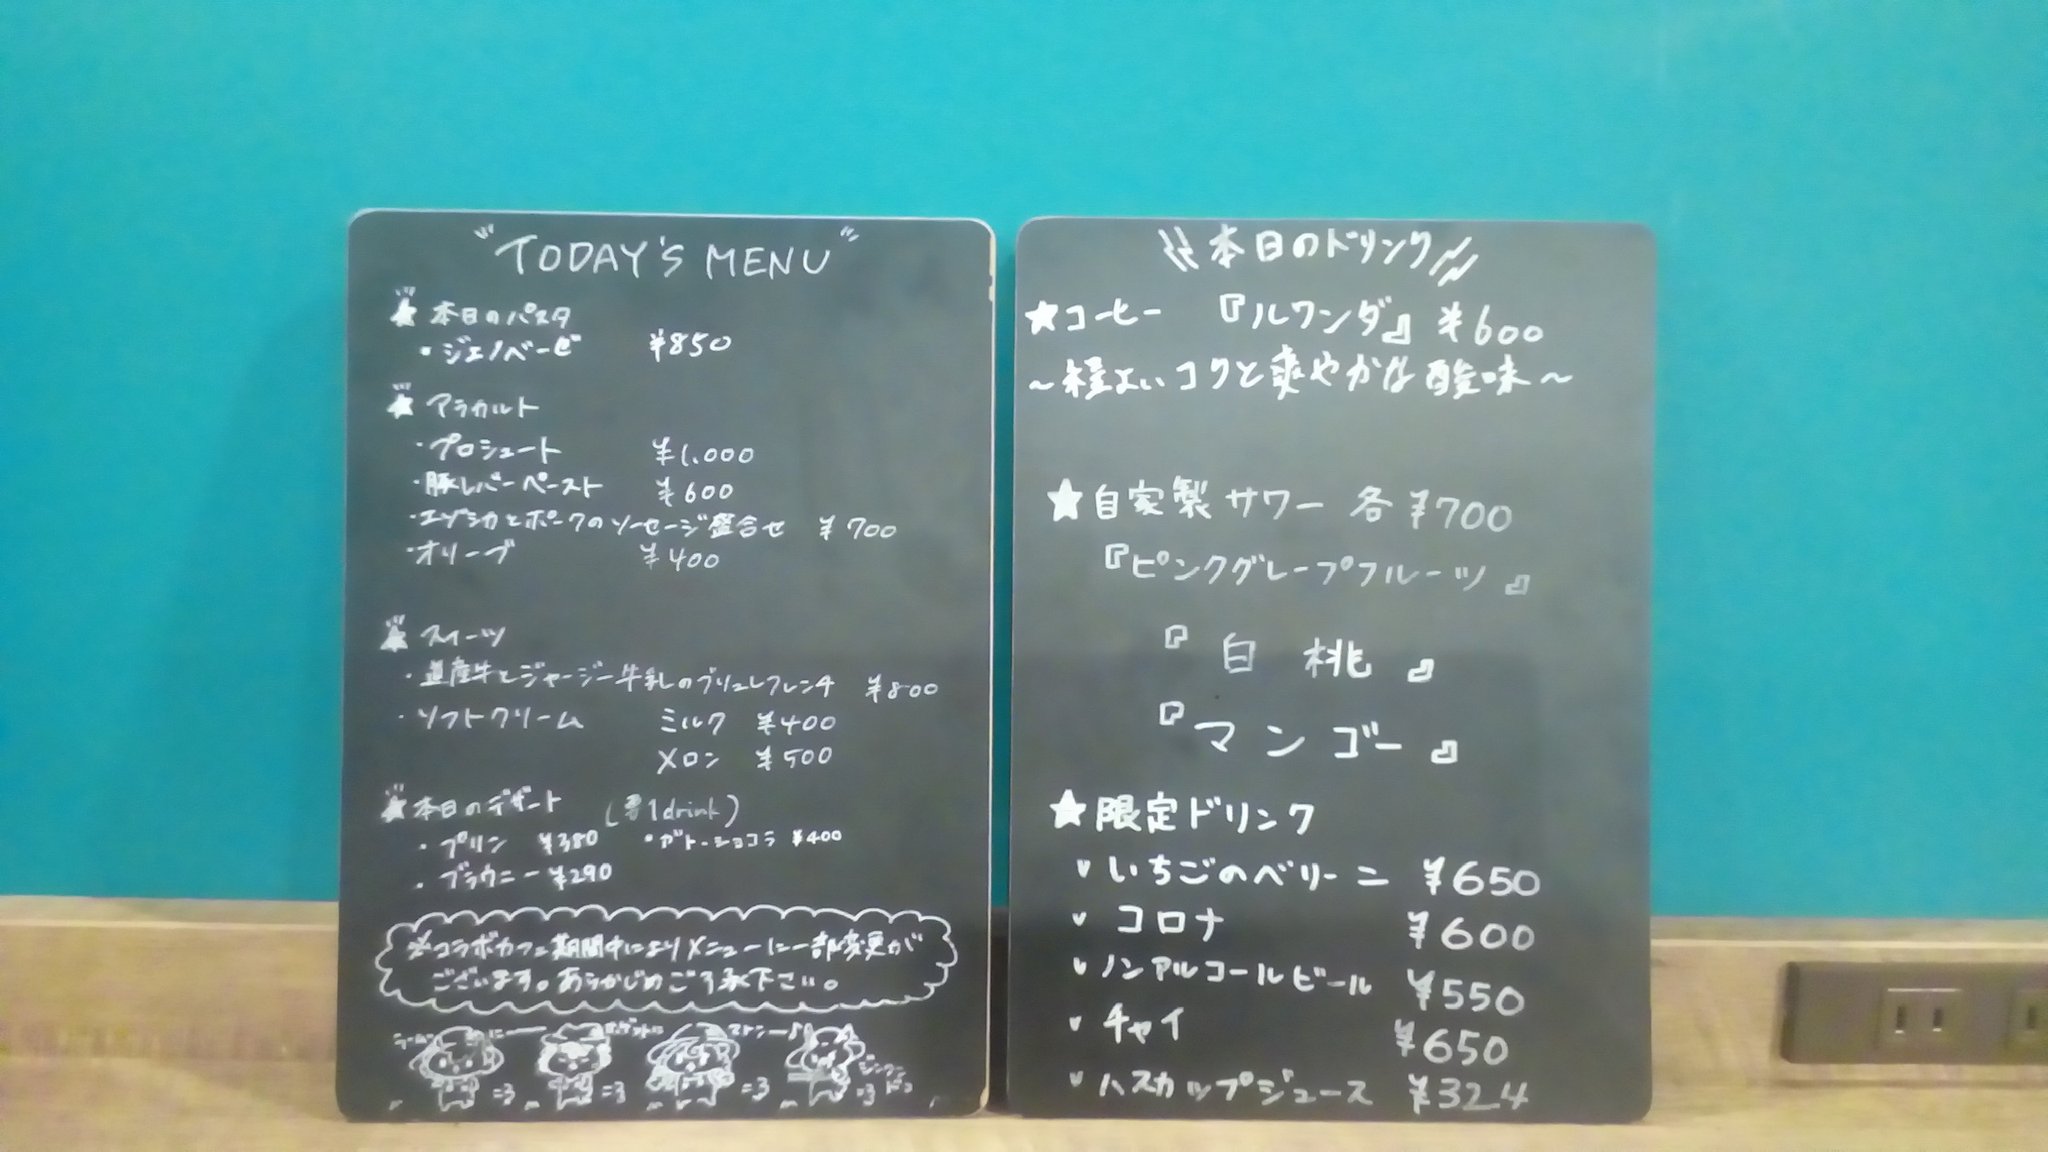 "TODAY'S MENU"
★本日のパスタ
・ジェノベーゼ ¥850
★アラカルト
・プロシュート ¥1,000
・豚レバーペースト ¥600
・エゾシカとポークのソーセージ盛合せ ¥700
・オリーブ ¥400
★スイーツ
・道産牛とジャージー牛乳のブリュレフレンチ ¥800
・ソフトクリーム ミルク ¥400
メロン ¥500
★本日のデザート (要1drink)
・プリン ¥380 ・ガトーショコラ ¥400
・ブラウニー ¥290
※コラボカフェ期間中によりメニューに一部変更が
ございます。あらかじめご了承下さい。
本日のドリンク
★コーヒー 『ルワンダ』 ¥600
～程よいコクと爽やかな酸味～
★自家製サワー 各¥700
『ピンクグレープフルーツ』
『白桃』
『マンゴー』
★限定ドリンク
いちごのベリーニ ¥650
コロナ ¥600
ノンアルコールビール ¥550
チャイ ¥650
ハスカップジュース ¥324